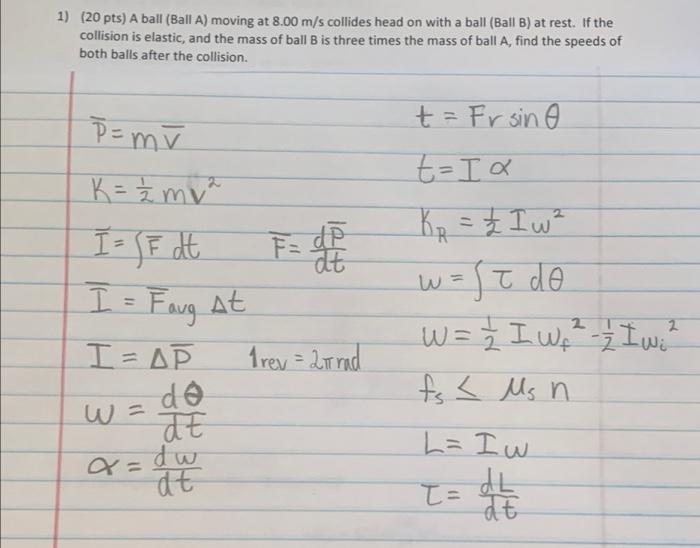 1) (20 pts) A ball (Ball A) moving at 8.00 m/s collides head on with a ball (Ball B) at rest. If the
collision is elastic, and the mass of ball B is three times the mass of ball A, find the speeds of
both balls after the collision.
P̅ = mv̅
K = ½ mv²
I̅ = ∫F̅ dt
F̅ = dP̅/dt
I̅ = F̅avg Δt
I = ΔP̅
1rev = 2π rad
ω = dθ/dt
α = dω/dt
t = Fr sin θ
t = I α
K_R = ½ Iω²
w = ∫ τ dθ
W = ½ Iω_f² - ½ Iω_i²
f_s ≤ μ_s n
L = Iω
τ = dL/dt